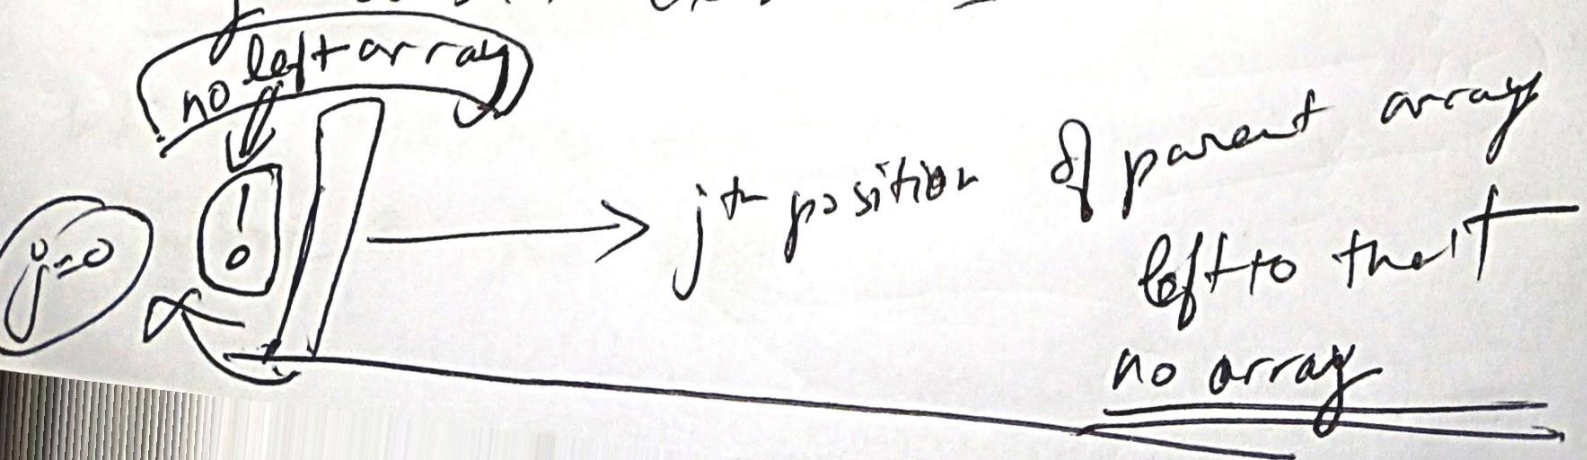 no left array
!
j=0
jth position of parent array
left to that
no array